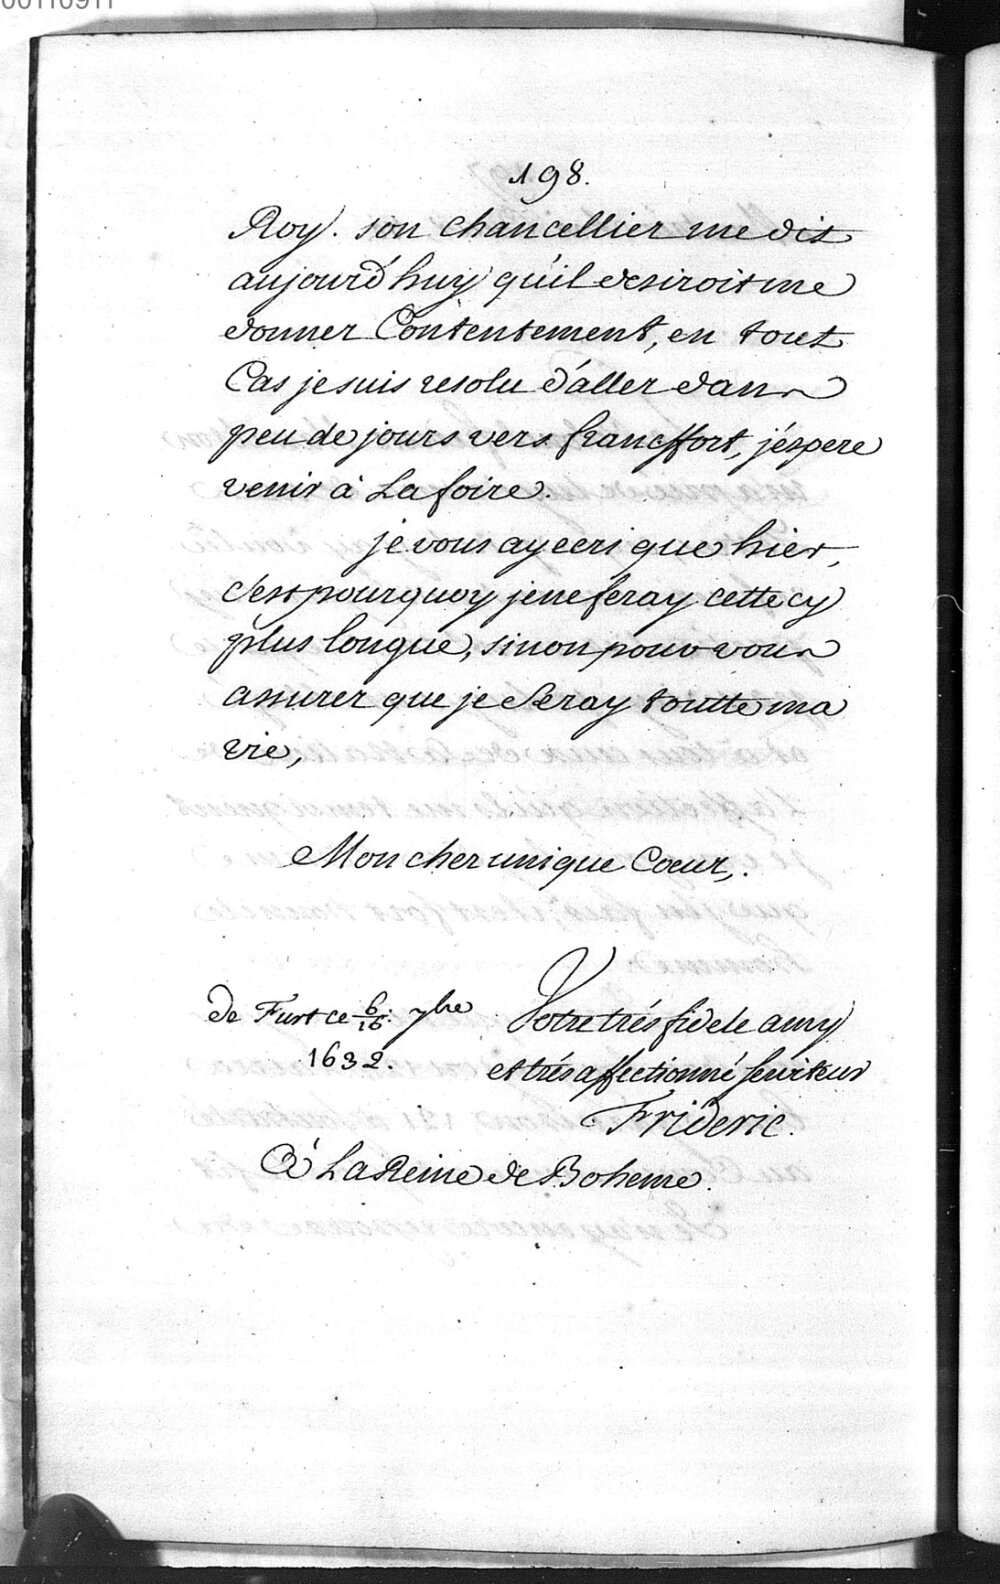 00110911
198.
Roy. son Chancellier me dit
aujourd'huy qu'il desiroit me
donner Contentement, en tout
Cas je suis resolu d'aller dans
peu de jours vers francffort, j'éspere
venir à La foire.
je vous ay ecri que hier,
c'est pourquoy je ne feray cette cy
plus longue, sinon pour vous
assurer que je Seray toutte ma
vie,
Mon cher unique Coeur,.
de Furt ce 6/16. 7bre
1632.
Votre trés fidele amy
et trés affectionné serviteur
Frideric.
A La Reine de Boheme.